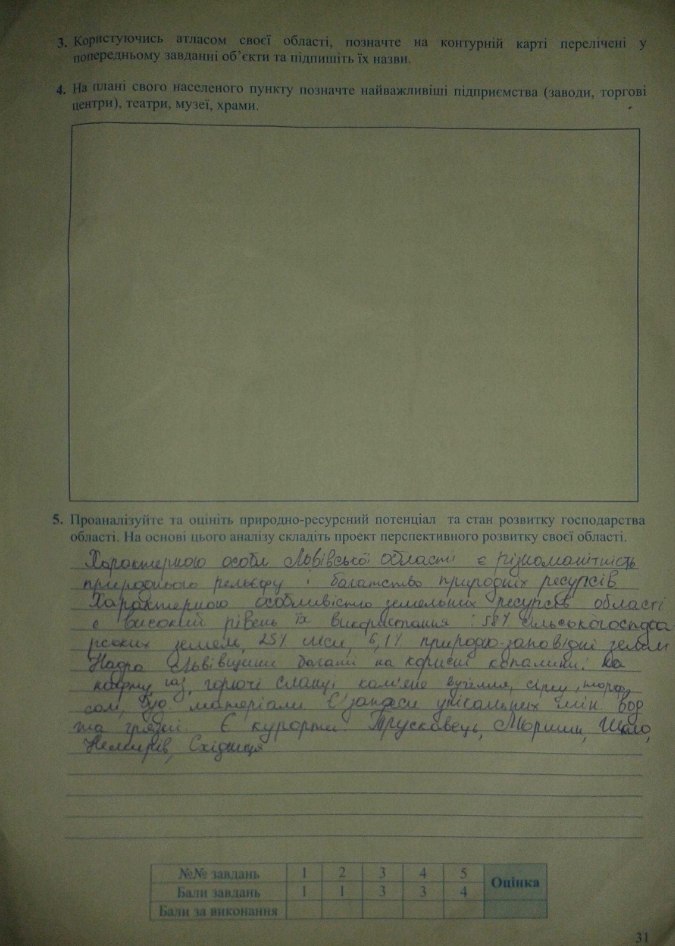 3. Користуючись атласом своєї області, позначте на контурній карті перелічені у
попередньому завданні об'єкти та підпишіть їх назви.
4. На плані свого населеного пункту позначте найважливіші підприємства (заводи, торгові
центри), театри, музеї, храми.
5. Проаналізуйте та оцініть природно-ресурсний потенціал та стан розвитку господарства
області. На основі цього аналізу складіть проект перспективного розвитку своєї області.
Характерною особл Львівської області є різноманітність
природнього рельєфу і багатство природних ресурсів
Характерною особливістю земельних ресурсів області
є високий рівень їх використання: 58% сільськогоспода
рських земель, 25% ліси, 6,1% природно-заповідні землі
Надра Львівщини багаті на корисні копалини: на
нафту, газ, горючі сланці, кам'яне вугілля, сірку, торф,
сол, буд. матеріали Є запаси унікальних мін. вод
та грязей. Є курорти Трускавець, Моршин, Шкло,
Немирів, Східниця
№№ завдань 1 2 3 4 5 Оцінка
Бали завдань 1 1 3 3 4
Бали за виконання
31